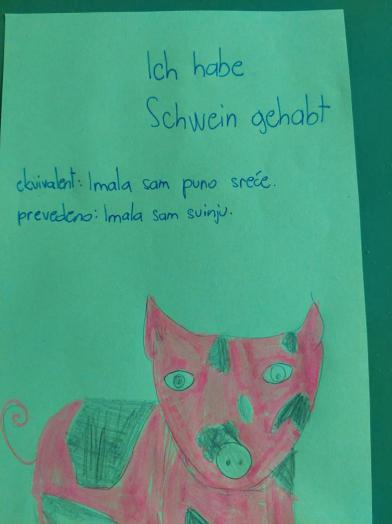 Ich habe
Schwein gehabt
ekvivalent: Imala sam puno sreće.
prevedeno: Imala sam svinju.